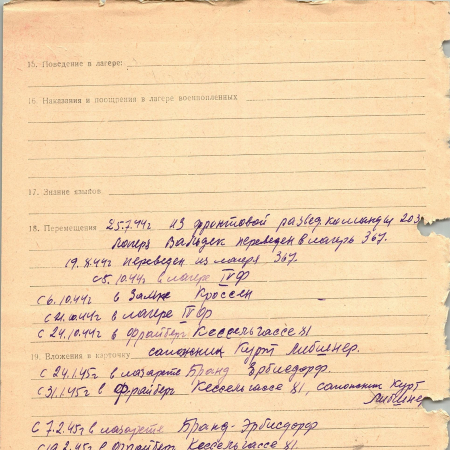 15. Поведение в лагере:
16. Наказания и поощрения в лагере военнопленных
17. Знание языков.
18. Перемещения 25.7.44г из фронтовой развед команды 203
лагеря Вальдек переведен в лагерь 367.
19.8.44г переведен из лагеря 367.
с 5.10.44г в лагере IVФ
с 6.10.44г в Замке Кроссен
с 21.10.44г в лагере IVФ
с 24.10.44г в Фрайберг Кессельгассе 21
19. Вложения в карточку сапожник Курт Либшнер.
с 24.1.45г в лазарете Бранд Эрбисдорф
с 31.1.45г в Фрайберг Кессельгассе 21, сапожник Курт
Либшнер
с 7.2.45г в лазарете Бранд-Эрбисдорф
в Фрайберг Кессельгассе 21.